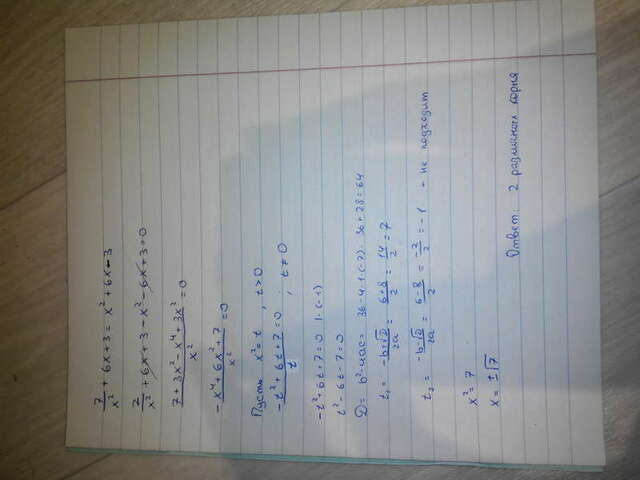 7/x² + 6x + 3 = x² + 6x - 3
7/x² + 6x + 3 - x² - 6x + 3 = 0
(7 + 3x² - x⁴ + 3x²)/x² = 0
(-x⁴ + 6x² + 7)/x² = 0
Пусть x² = t, t > 0
(-t² + 6t + 7)/t = 0 ; t ≠ 0
-t² + 6t + 7 = 0 |·(-1)
t² - 6t - 7 = 0
D = b² - 4ac = 36 - 4·1·(-7) = 36 + 28 = 64
t₁ = (-b + √D)/2a = (6 + 8)/2 = 14/2 = 7
t₂ = (-b - √D)/2a = (6 - 8)/2 = -2/2 = -1 - не подходит
x² = 7
x = ±√7
Ответ: 2 различных корня